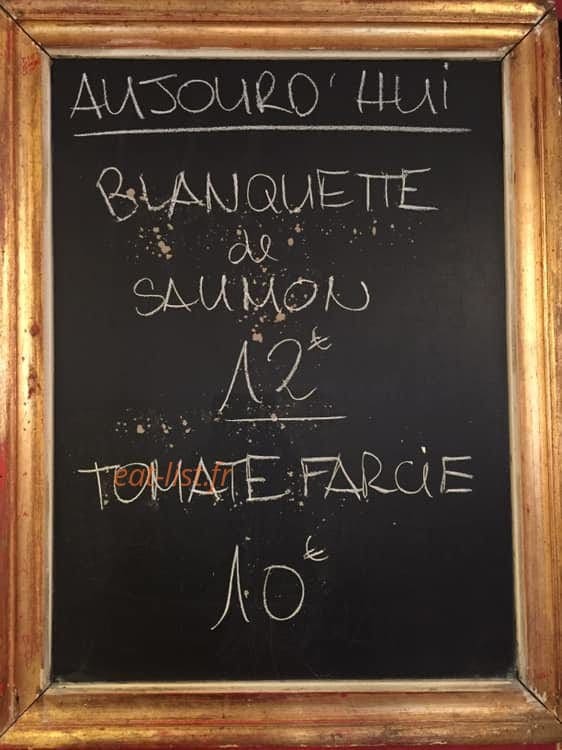 AUJOURD'HUI
BLANQUETTE
de
SAUMON
12€
TOMATE FARCIE
eat-list.fr
10€